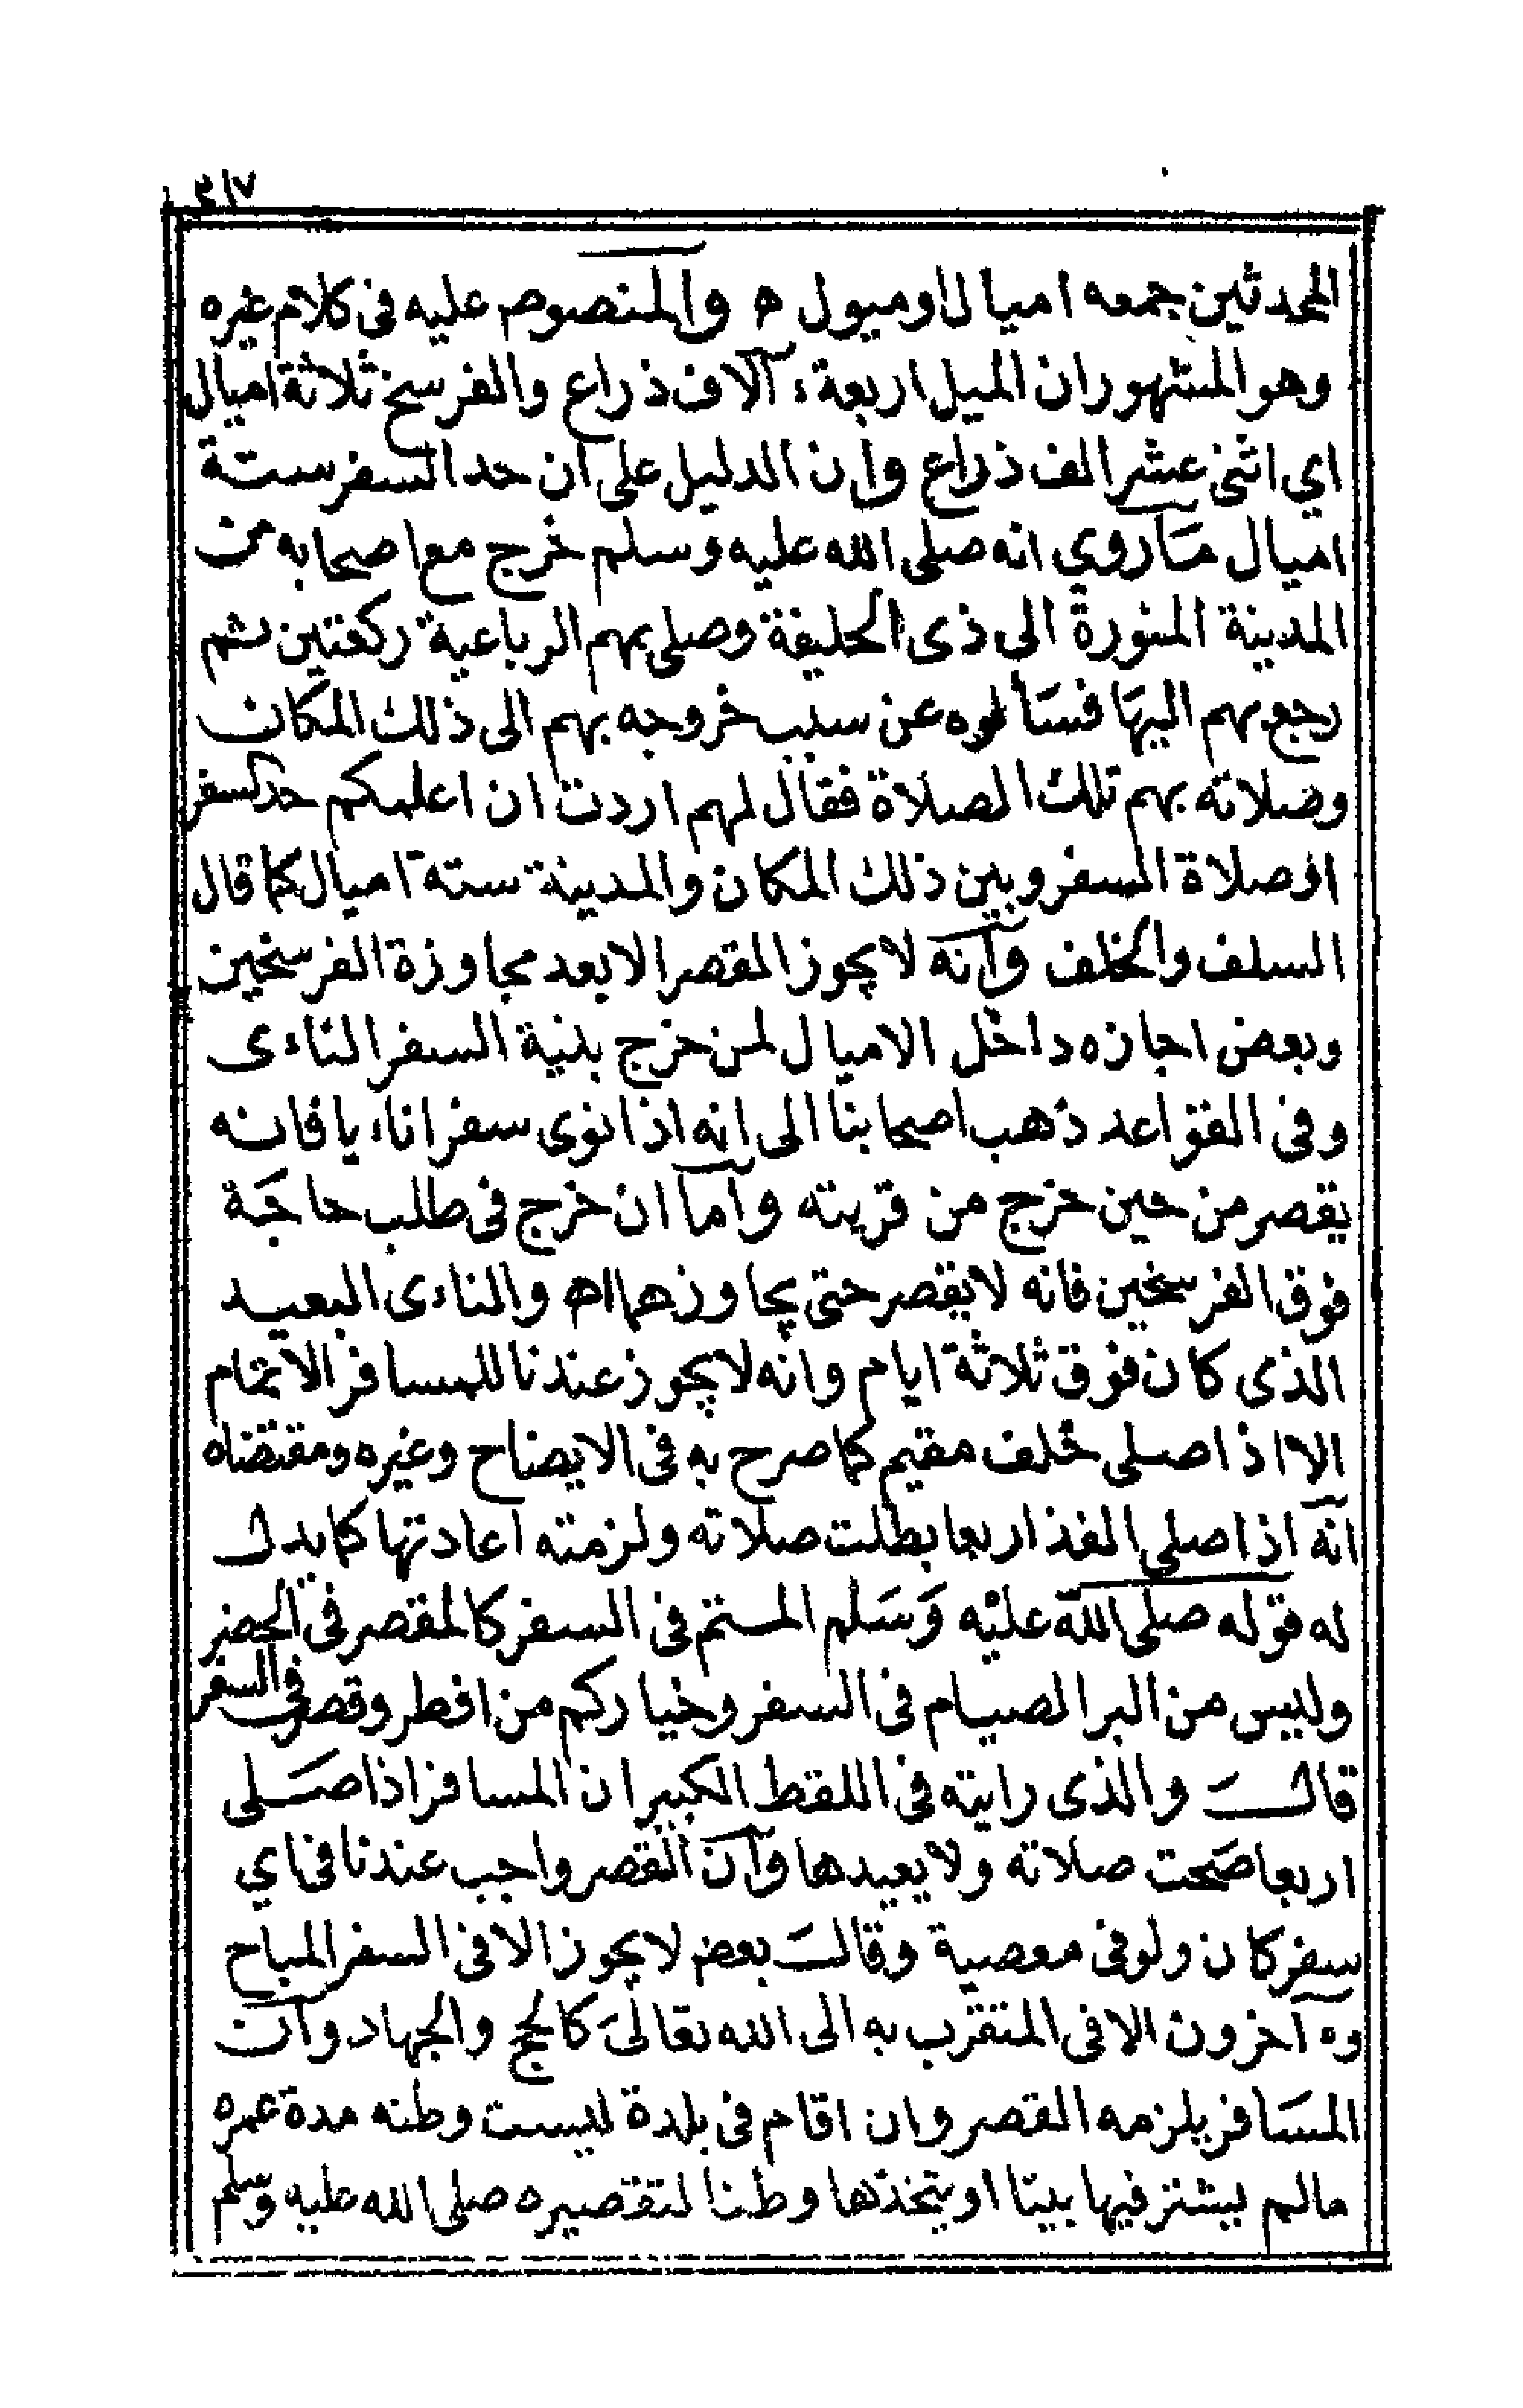 ٣١٧
المحدثين جمعه اميال او ميول ه والمنصوص عليه فى كلام غيره
وهو المشهور ان الميل اربعة ءآلاف ذراع والفرسخ ثلاثة اميال
اي اثنى عشر الف ذراع وان الدليل على ان حد السفر ستة
اميال ما روي انه صلى الله عليه وسلم خرج مع اصحابه من
المدينة المنورة الى ذى الحليفة وصلى بهم الرباعية ركعتين ثم
رجع بهم اليها فسألوه عن سبب خروجه بهم الى ذلك المكان
وصلاته بهم تلك الصلاة فقال لهم اردت ان اعلمكم حد السفر
او صلاة السفر وبين ذلك المكان والمدينة ستة اميال كما قال
السلف والخلف وانه لا يجوز القصر الا بعد مجاوزة الفرسخين
وبعض اجازه داخل الاميال لمن خرج بنية السفر الناءى
وفى القواعد ذهب اصحابنا الى انه اذا نوى سفرا ناءيا فانه
يقصر من حين خرج من قريته واما ان خرج فى طلب حاجة
فوق الفرسخين فانه لا يقصر حتى يجاوزهما اه والناءى البعيد
الذى كان فوق ثلاثة ايام وانه لا يجوز عندنا للمسافر الاتمام
الا اذا صلى خلف مقيم كما صرح به فى الايضاح وغيره ومقتضاه
انه اذا صلى الفذ اربعا بطلت صلاته ولزمته اعادتها كما يدل
له قوله صلى الله عليه وسلم المتم فى السفر كالمقصر فى الحضر
وليس من البر الصيام فى السفر وخياركم من افطر وقصر فى السفر
قال والذى رايته فى اللقط الكبير ان المسافر اذا صلى
اربعا صحت صلاته ولا يعيدها وان القصر واجب عندنا فى اي
سفر كان ولو فى معصية وقال بعض لا يجوز الا فى السفر المباح
وه آخرون الا فى المتقرب به الى الله تعالى كالحج والجهاد وان
المسافر يلزمه القصر وان اقام فى بلدة ليست وطنه مدة عمره
مالم يشتر فيها بيتا او يتخذها وطنا لتقصيره صلى الله عليه وسلم